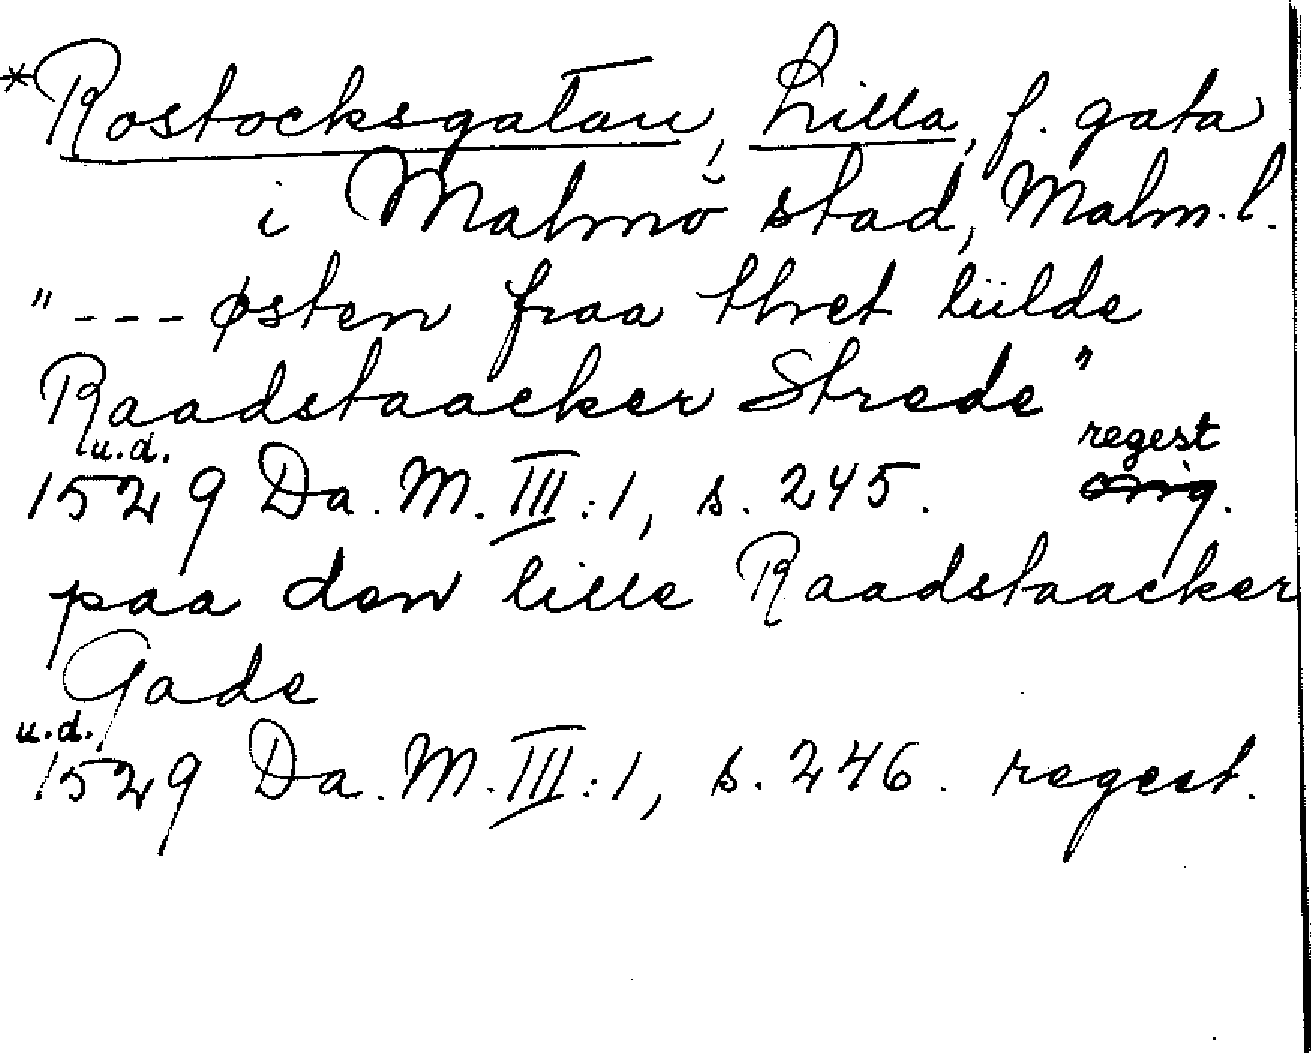 *Rostocksgatan, Lilla, f. gata
i Malmö stad, Malm.l.
"--- østen fraa thret liilde
Raadstaacker Strede"
u.d. regest
1529 Da. M. III:1, s. 245. orig.
paa den lille Raadstaacker
Gade
u.d.
1529 Da. M. III:1, s. 246. regest.